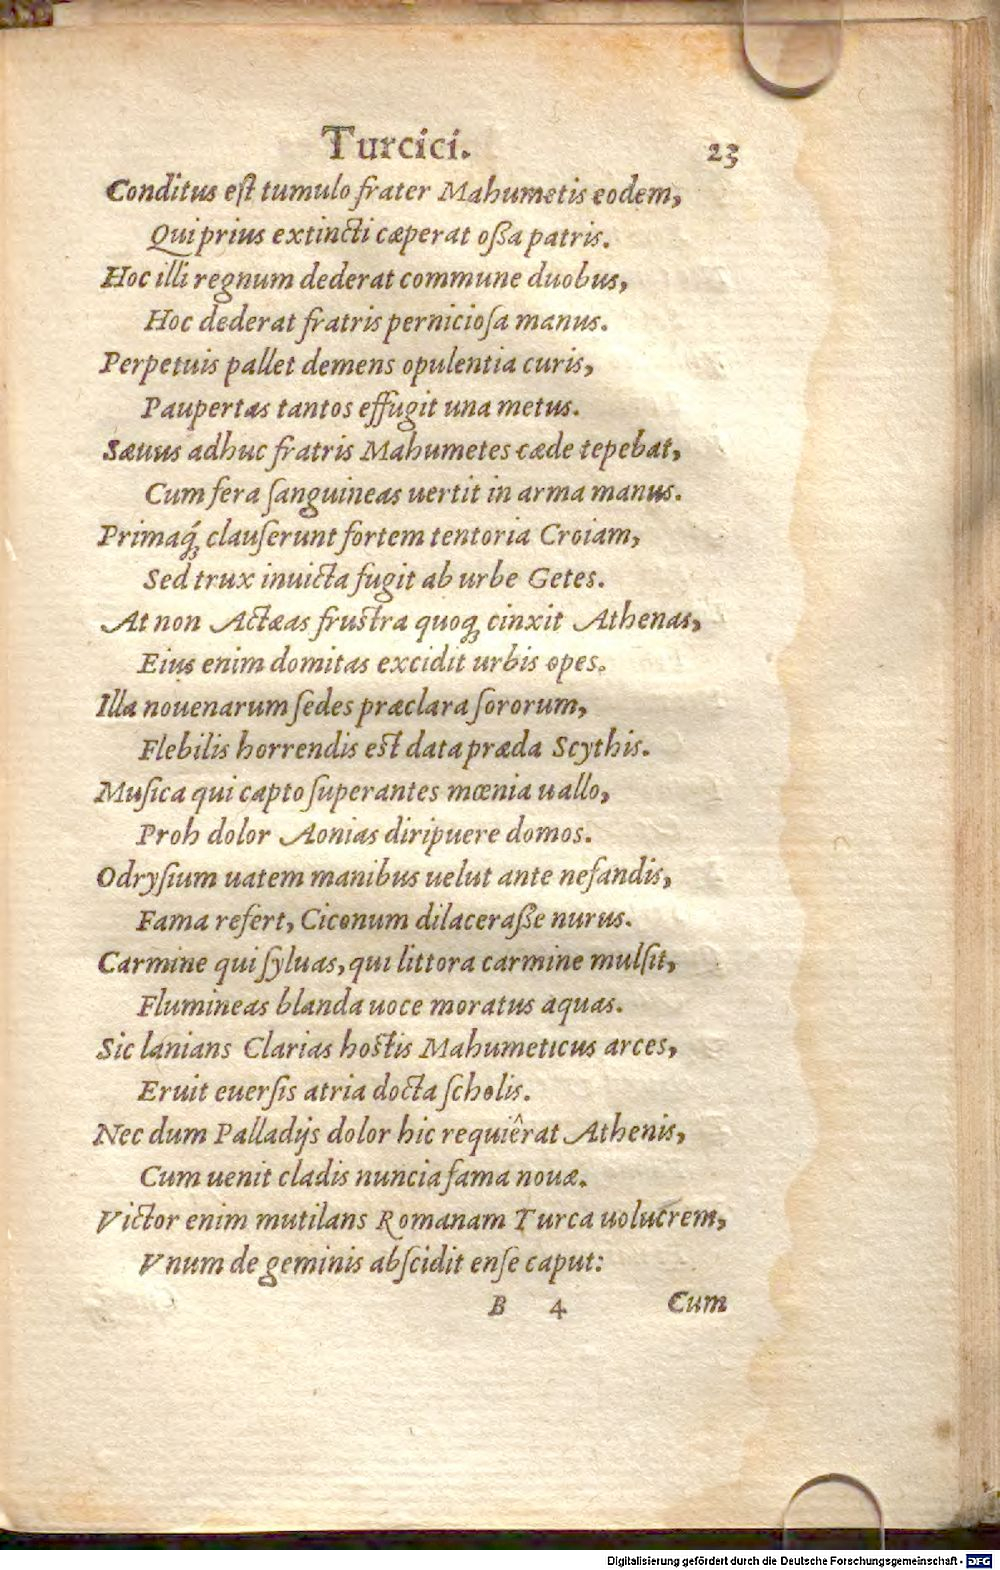 Turcici. 23
Conditus eſt tumulo frater Mahumetis eodem,
Qui prius extincti cæperat oßa patris.
Hoc illi regnum dederat commune duobus,
Hoc dederat fratris pernicioſa manus.
Perpetuis pallet demens opulentia curis,
Paupertas tantos effugit una metus.
Sæuus adhuc fratris Mahumetes cæde tepebat,
Cum fera ſanguineas uertit in arma manus.
Primaq́ꝫ clauſerunt fortem tentoria Croiam,
Sed trux inuicta fugit ab urbe Getes.
At non Actæas fruſtra quoqꝫ cinxit Athenas,
Eius enim domitas excidit urbis opes.
Illa nouenarum ſedes præclara ſororum,
Flebilis horrendis eſt data præda Scythis.
Muſica qui capto ſuperantes mœnia uallo,
Proh dolor Aonias diripuere domos.
Odryſium uatem manibus uelut ante nefandis,
Fama refert, Ciconum dilaceraße nurus.
Carmine qui ſyluas, qui littora carmine mulſit,
Flumineas blanda uoce moratus aquas.
Sic lanians Clarias hoſtis Mahumeticus arces,
Eruit euerſis atria docta ſcholis.
Nec dum Palladijs dolor hic requiêrat Athenis,
Cum uenit cladis nuncia fama nouæ.
Victor enim mutilans Romanam Turca uolucrem,
Vnum de geminis abſcidit enſe caput:
B 4 Cum
Digitalisierung gefördert durch die Deutsche Forschungsgemeinschaft - DFG